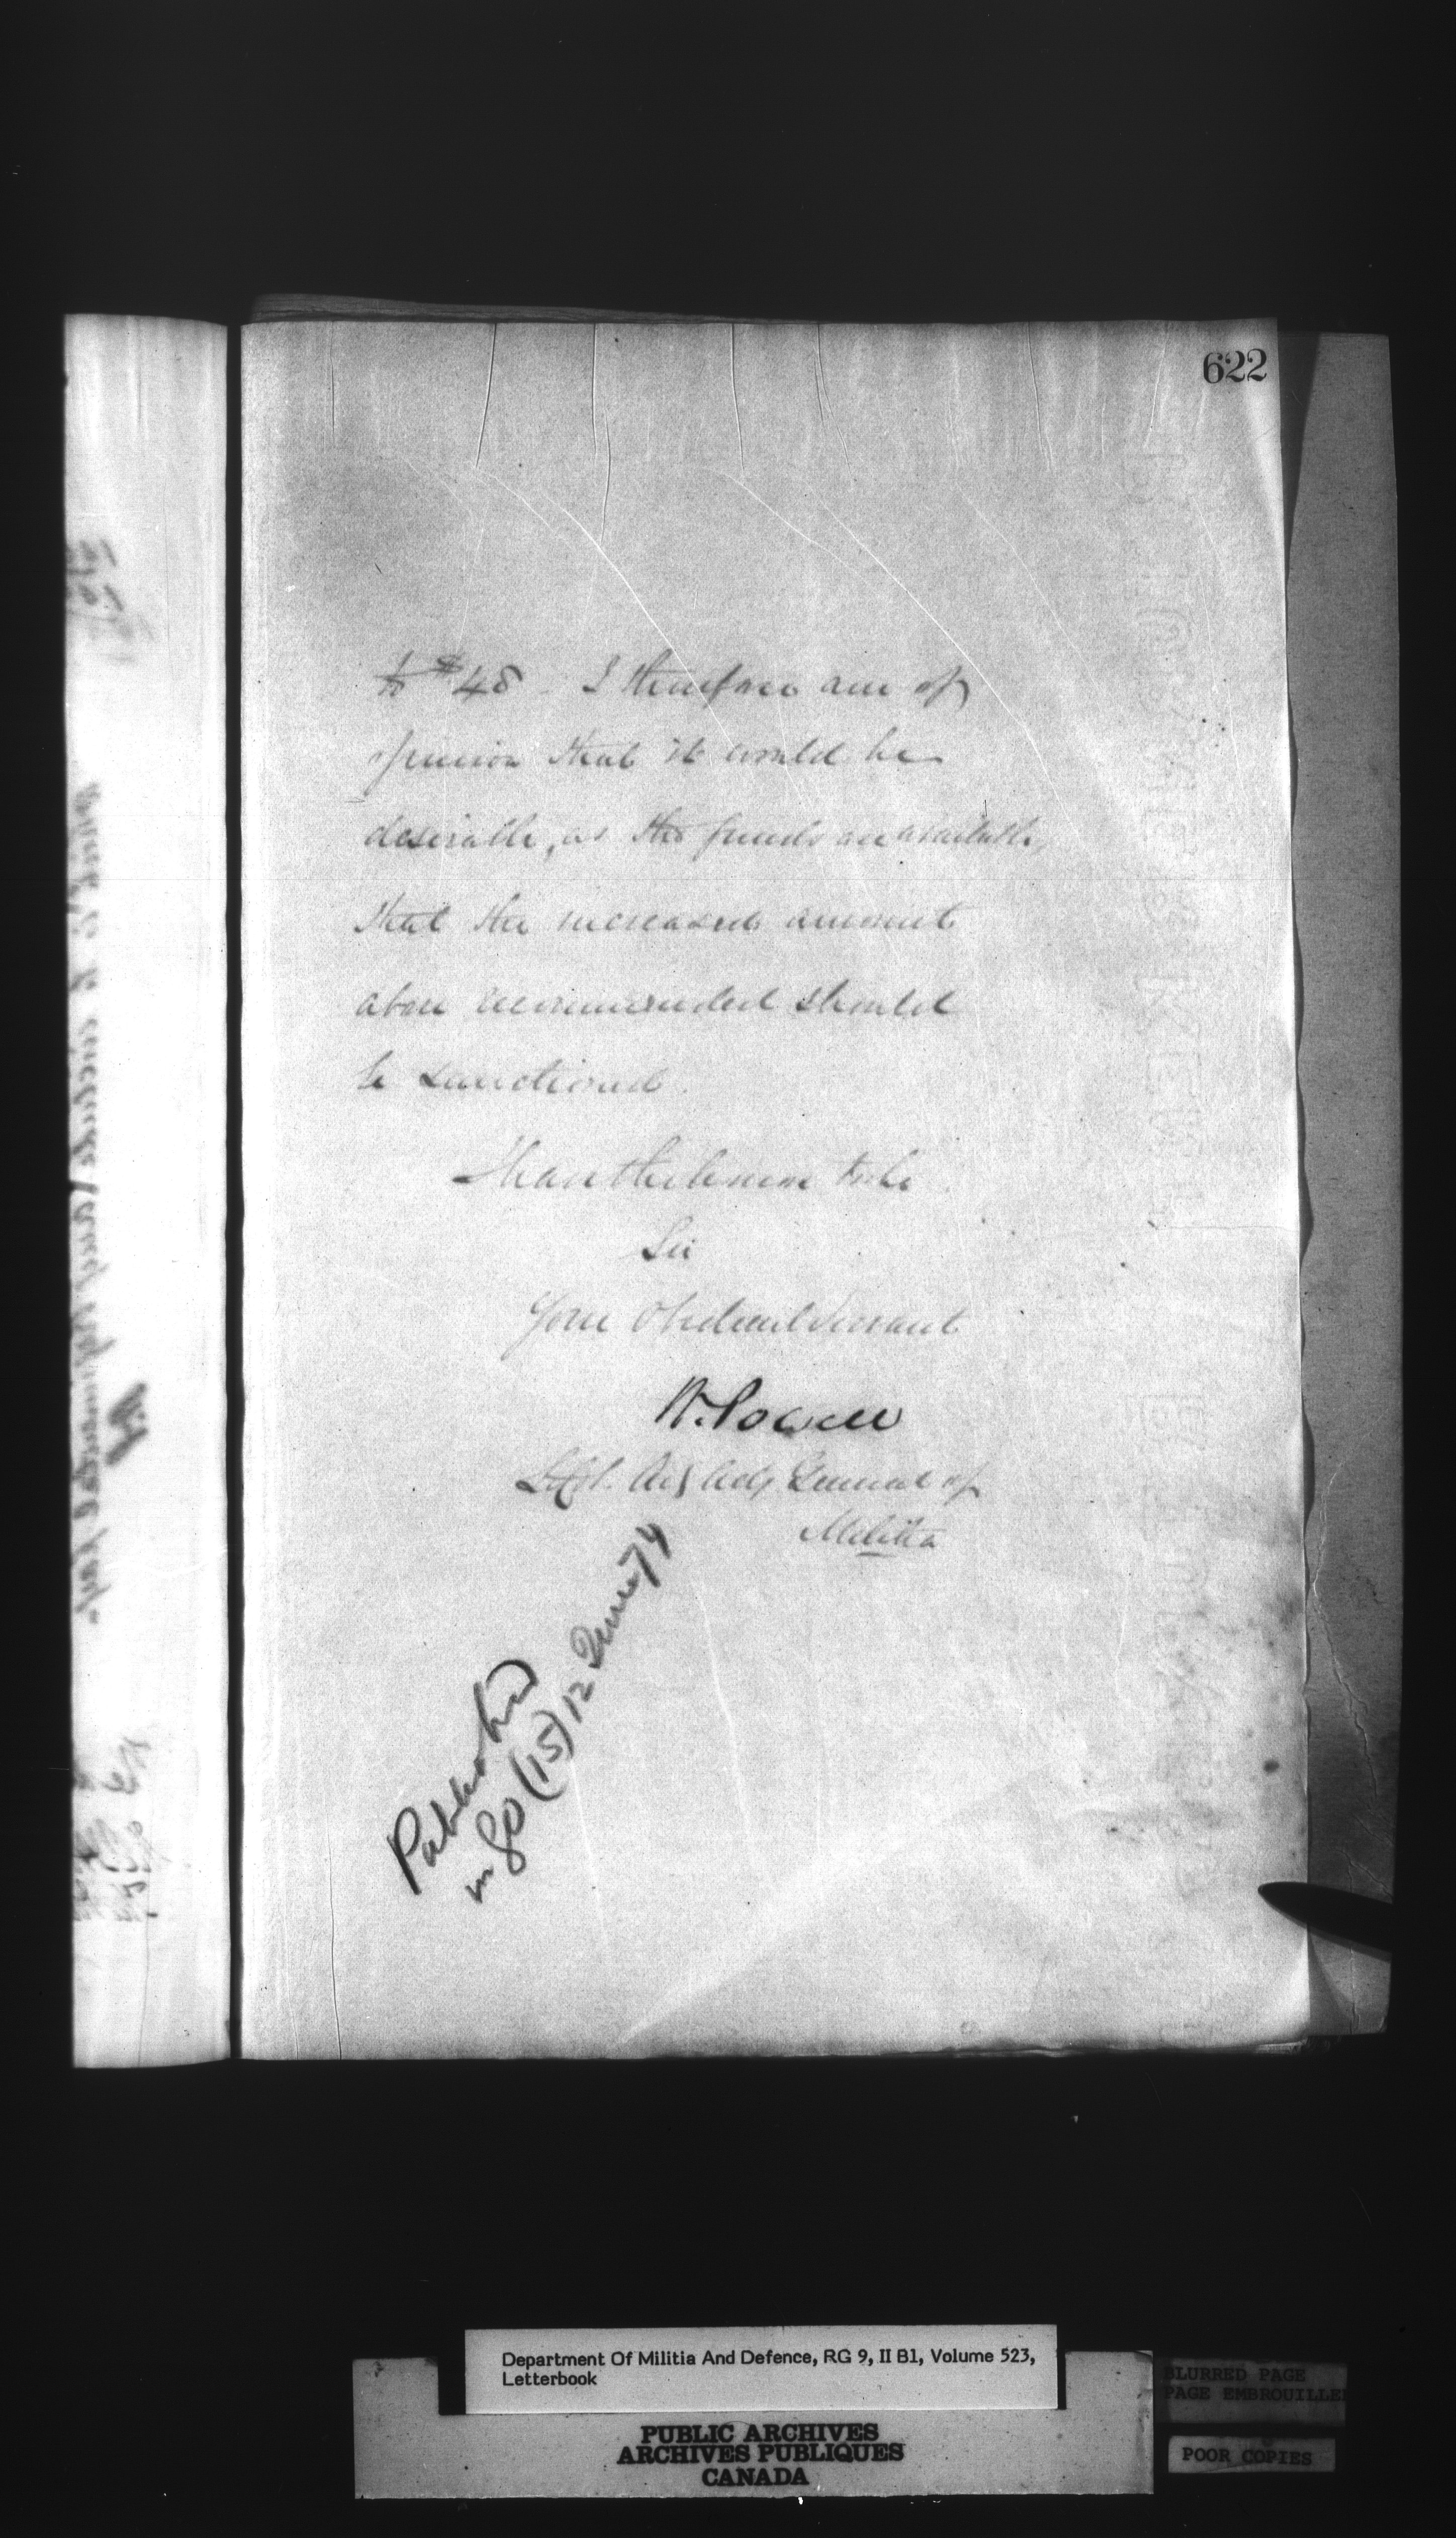 622
to $48. I therefore am of
opinion that it would be
desirable, as the funds are available,
that the increased amount
above recommended should
be sanctioned.
I have the honor to be
Sir
Your Obedient Servant
W. Powell
Lt Col. Act Adj General of
Militia
Published
in GO (15) 12 June 74
Department Of Militia And Defence, RG 9, II B1, Volume 523,
Letterbook
PUBLIC ARCHIVES
ARCHIVES PUBLIQUES
CANADA
BLURRED PAGE
PAGE EMBROUILLE
POOR COPIES